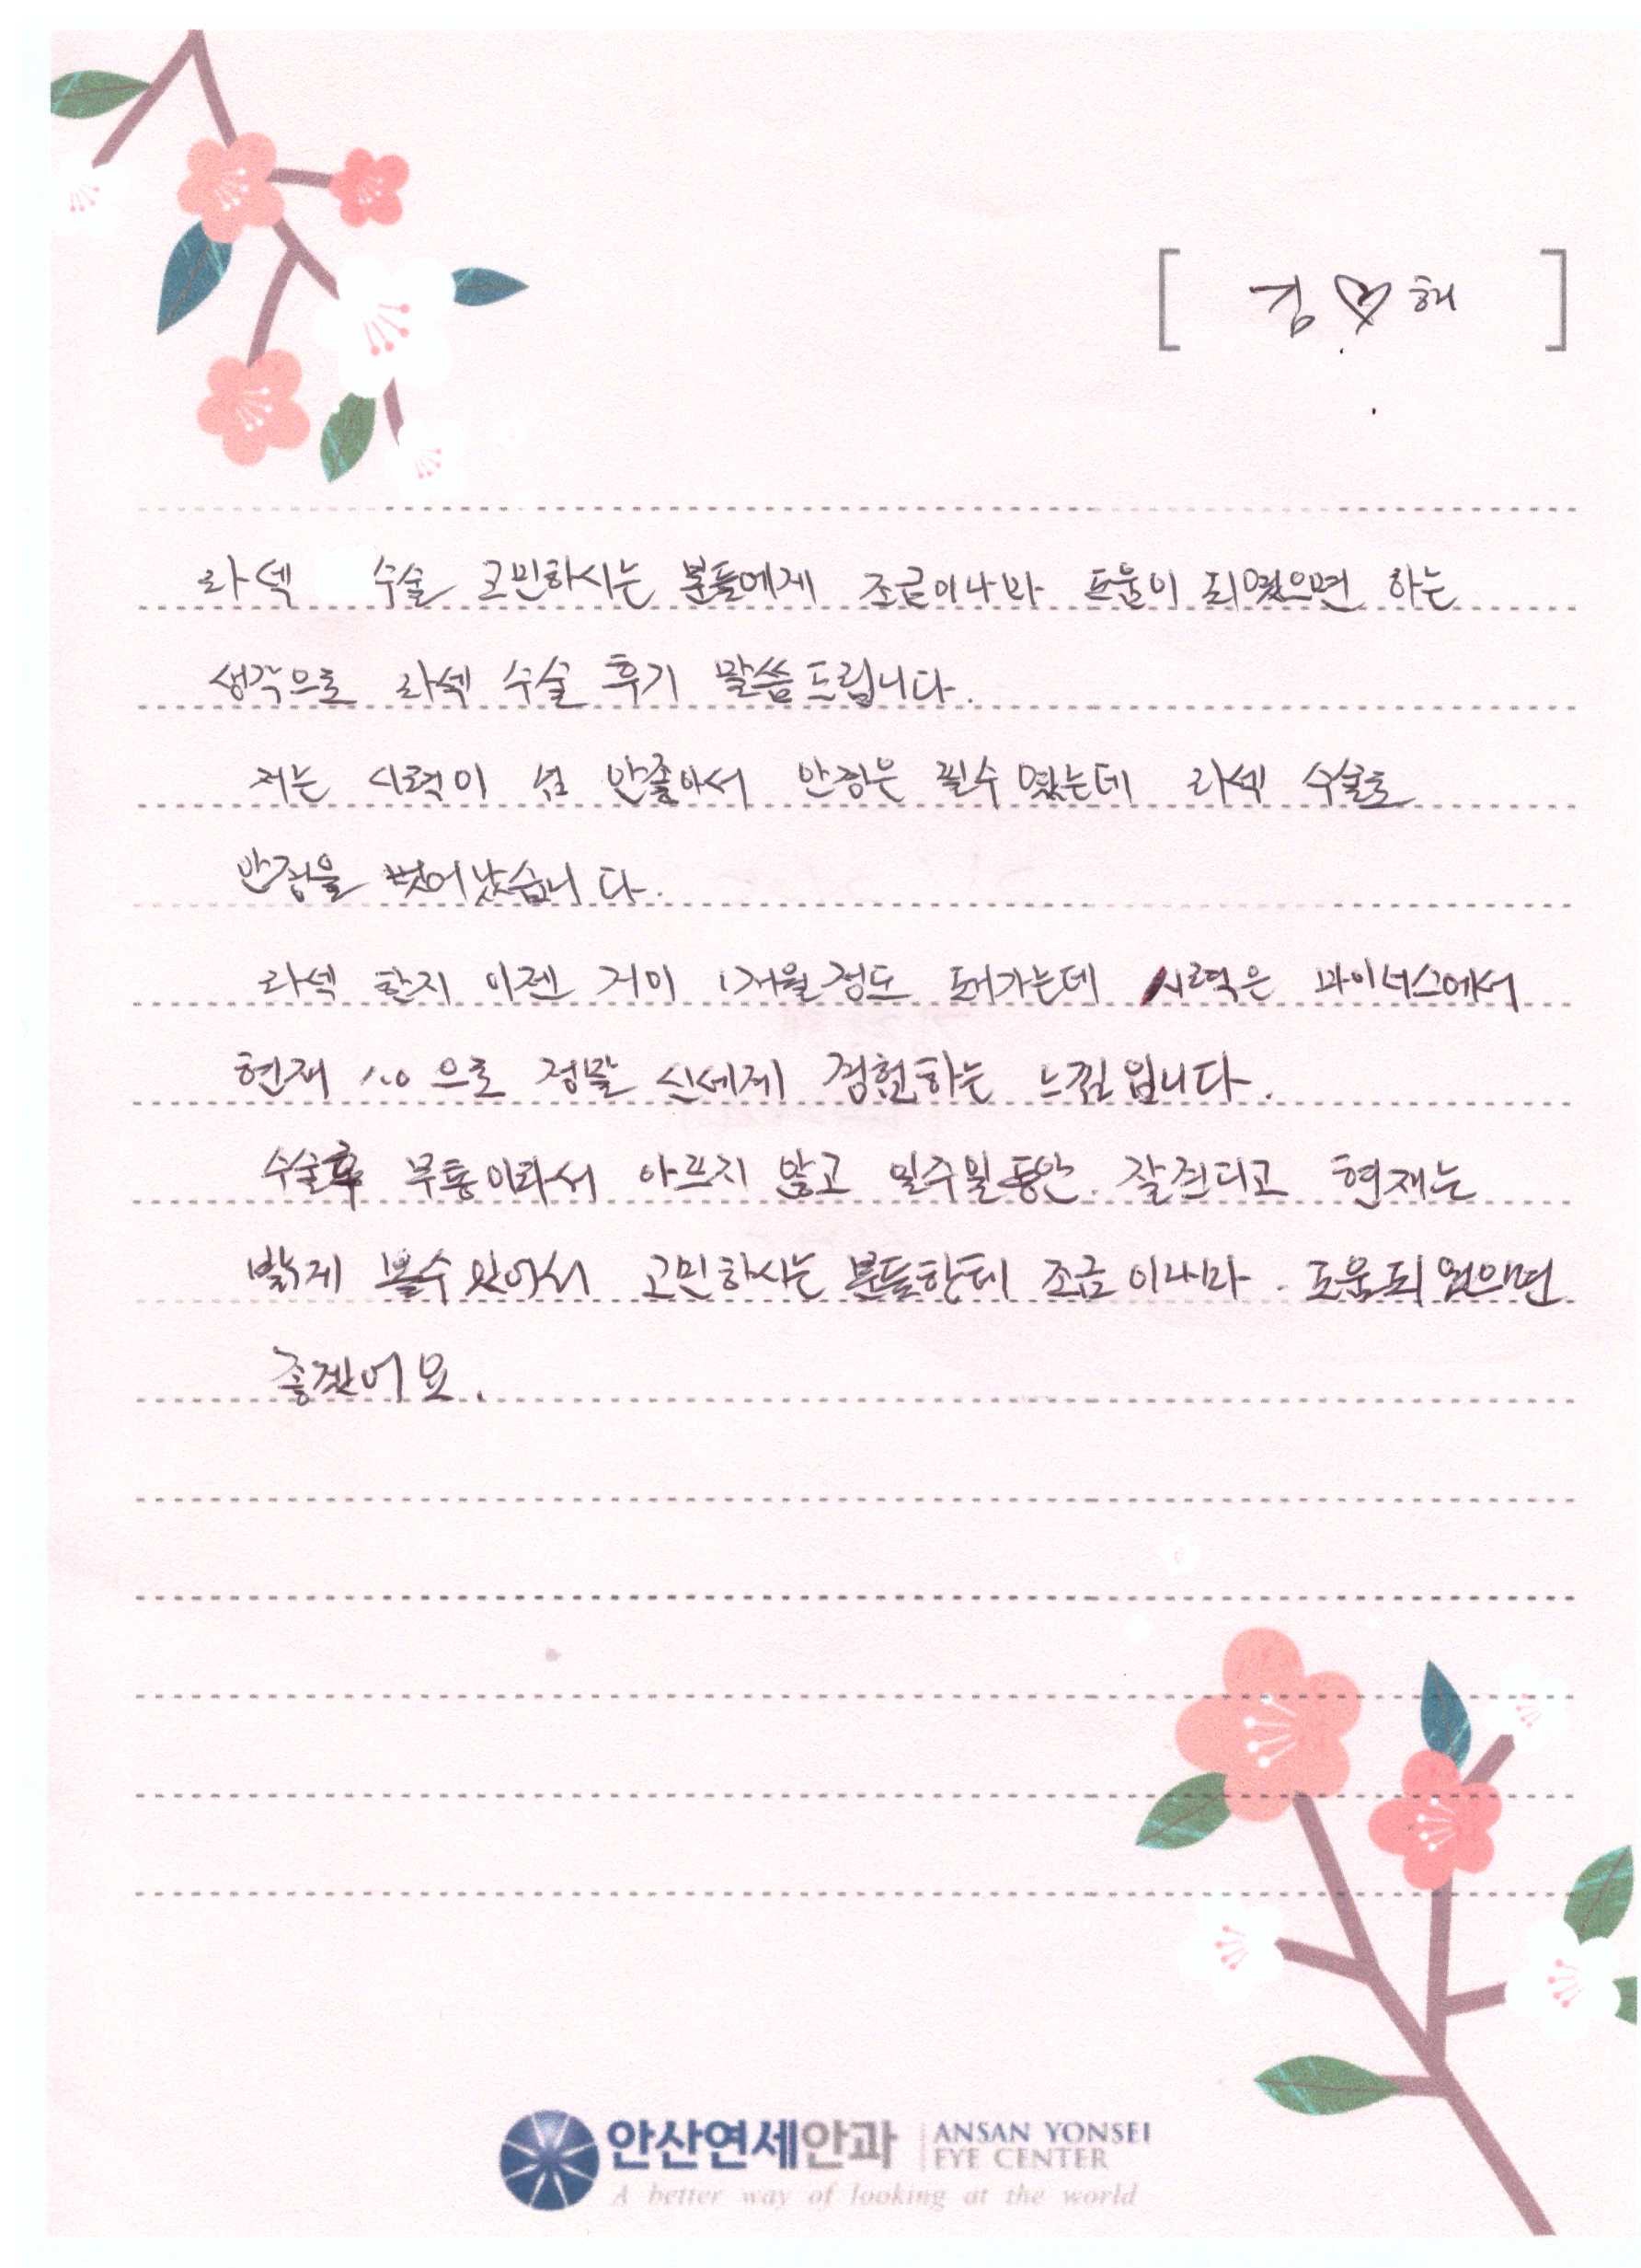 [ 김♡해 ]
라섹 수술 고민하시는 분들에게 조금이나마 도움이 되였으면 하는
생각으로 라섹 수술 후기 말씀드립니다.
저는 시력이 넘 안좋아서 안경은 필수였는데 라섹 수술로
안경을 벗어났습니다.
라섹 한지 이젠 거이 1개월 정도 돼가는데 시력은 마이너스에서
현재 1.0 으로 정말 신세계 경험하는 느낌입니다.
수술후 무통이라서 아프지 않고 일주일동안 잘견디고 현재는
밝게 볼수있어서 고민하시는 분들한테 조금이나마 도움되었으면
좋겠어요.
안산연세안과 ANSAN YONSEI
EYE CENTER
A better way of looking at the world